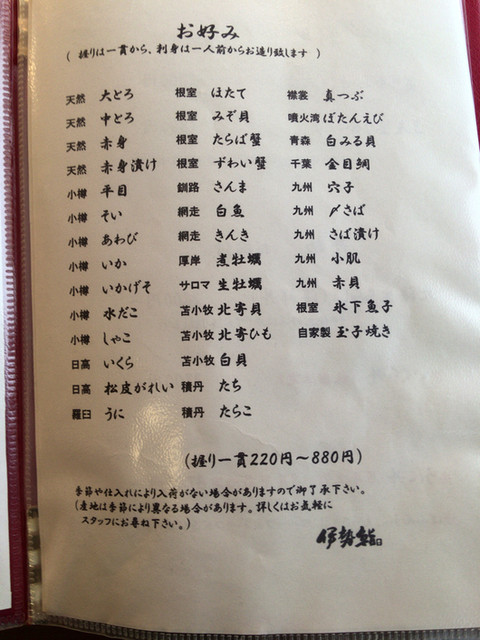 お好み
( 握りは一貫から、刺身は一人前からお造り致します )
天然 大とろ 根室 ほたて 襟裳 真つぶ
天然 中とろ 根室 みぞ貝 噴火湾 ぼたんえび
天然 赤身 根室 たらば蟹 青森 白みる貝
天然 赤身漬け 根室 ずわい蟹 千葉 金目鯛
小樽 平目 釧路 さんま 九州 穴子
小樽 そい 網走 白魚 九州 〆さば
小樽 あわび 網走 きんき 九州 さば漬け
小樽 いか 厚岸 煮牡蠣 九州 小肌
小樽 いかげそ サロマ 生牡蠣 九州 赤貝
小樽 水だこ 苫小牧 北寄貝 根室 氷下魚子
小樽 しゃこ 苫小牧 北寄ひも 自家製 玉子焼き
日高 いくら 苫小牧 白貝
日高 松皮がれい 積丹 たち
羅臼 うに 積丹 たらこ
(握り一貫220円〜880円)
季節や仕入れにより入荷がない場合がありますので御了承下さい。
(産地は季節により異なる場合があります。詳しくはお気軽に
スタッフにお尋ね下さい。)
伊勢鮨